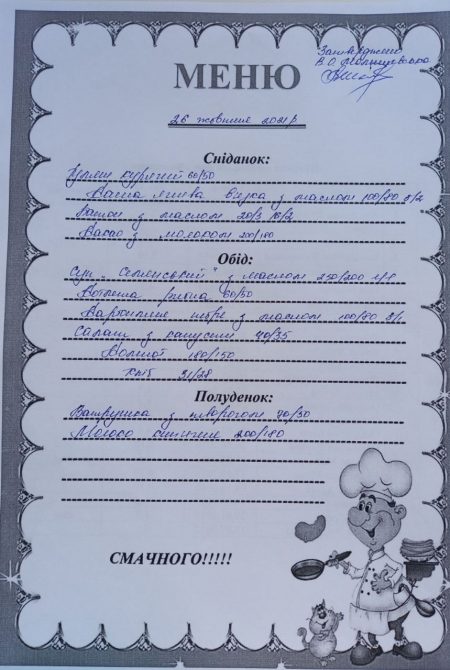 Затверджено
В.О.
МЕНЮ
26 жовтня 2021р
Сніданок:
Гуляш курячий 60/50
Каша ячнева в'язка з маслом 100/80
Батон з маслом 20/3 16/2
Какао з молоком 200/180
Обід:
Суп „Селянський" з маслом 250/200
Котлета рибна 60/50
Картопляне пюре з маслом 100/80
Салат з капусти 40/35
Компот 180/150
Хліб 31/28
Полуденок:
Ватрушка з творогом 70/50
Молоко кип'ячене 200/180
СМАЧНОГО!!!!!